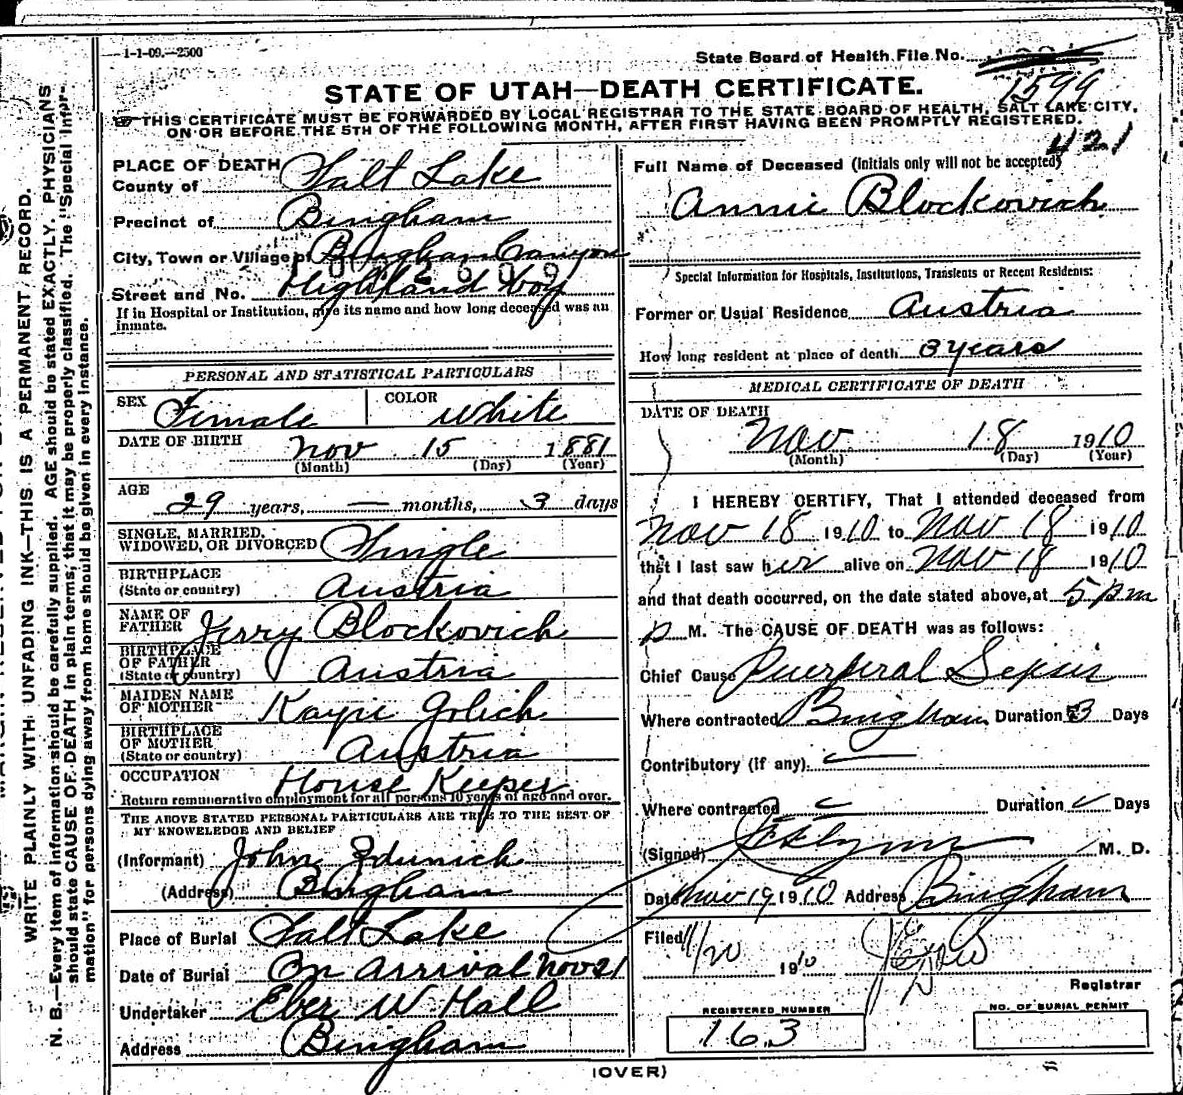 1-1-09.—2500
State Board of Health File No.
1599
STATE OF UTAH—DEATH CERTIFICATE.
THIS CERTIFICATE MUST BE FORWARDED BY LOCAL REGISTRAR TO THE STATE BOARD OF HEALTH, SALT LAKE CITY,
ON OR BEFORE THE 5TH OF THE FOLLOWING MONTH, AFTER FIRST HAVING BEEN PROMPTLY REGISTERED.
421
PLACE OF DEATH
County of Salt Lake
Precinct of Bingham
City, Town or Village of Bingham Canyon
Street and No. Highland Boy
If in Hospital or Institution, give its name and how long deceased was an
inmate.
PERSONAL AND STATISTICAL PARTICULARS
SEX Female COLOR White
DATE OF BIRTH Nov 15 1881
(Month) (Day) (Year)
AGE
29 years, — months, 3 days
SINGLE, MARRIED,
WIDOWED, OR DIVORCED Single
BIRTHPLACE
(State or country) Austria
NAME OF
FATHER Jerry Blockovich
BIRTHPLACE
OF FATHER
(State or country) Austria
MAIDEN NAME
OF MOTHER
BIRTHPLACE
OF MOTHER
(State or country) Austria
OCCUPATION House Keeper
Return remunerative employment for all persons 10 years of age and over.
THE ABOVE STATED PERSONAL PARTICULARS ARE TRUE TO THE BEST OF
MY KNOWELEDGE AND BELIEF
(Informant) John
(Address) Bingham
Place of Burial Salt Lake
Date of Burial On Arrival Nov 21
Undertaker Eber W Hall
Address Bingham
Full Name of Deceased (Initials only will not be accepted)
Annie Blockovich
Special Information for Hospitals, Institutions, Transients or Recent Residents:
Former or Usual Residence Austria
How long resident at place of death 3 years
MEDICAL CERTIFICATE OF DEATH
DATE OF DEATH
Nov 18 1910
(Month) (Day) (Year)
I HEREBY CERTIFY, That I attended deceased from
Nov 18 1910 to Nov 18 1910
that I last saw her alive on Nov 18 1910
and that death occurred, on the date stated above, at 5 pm
p M. The CAUSE OF DEATH was as follows:
Chief Cause Puerperal Sepsis
Where contracted Bingham Duration 3 Days
Contributory (If any):
Where contracted Duration Days
(Signed) M. D.
Date Nov 19 1910 Address Bingham
Filed 11/20 1910
Registrar
REGISTERED NUMBER
163
NO. OF BURIAL PERMIT
(OVER)
WRITE PLAINLY WITH UNFADING INK—THIS IS A PERMANENT RECORD.
N. B.—Every item of information should be carefully supplied. AGE should be stated EXACTLY. PHYSICIANS
should state CAUSE OF DEATH in plain terms, that it may be properly classified. The "Special Infor-
mation" for persons dying away from home should be given in every instance.